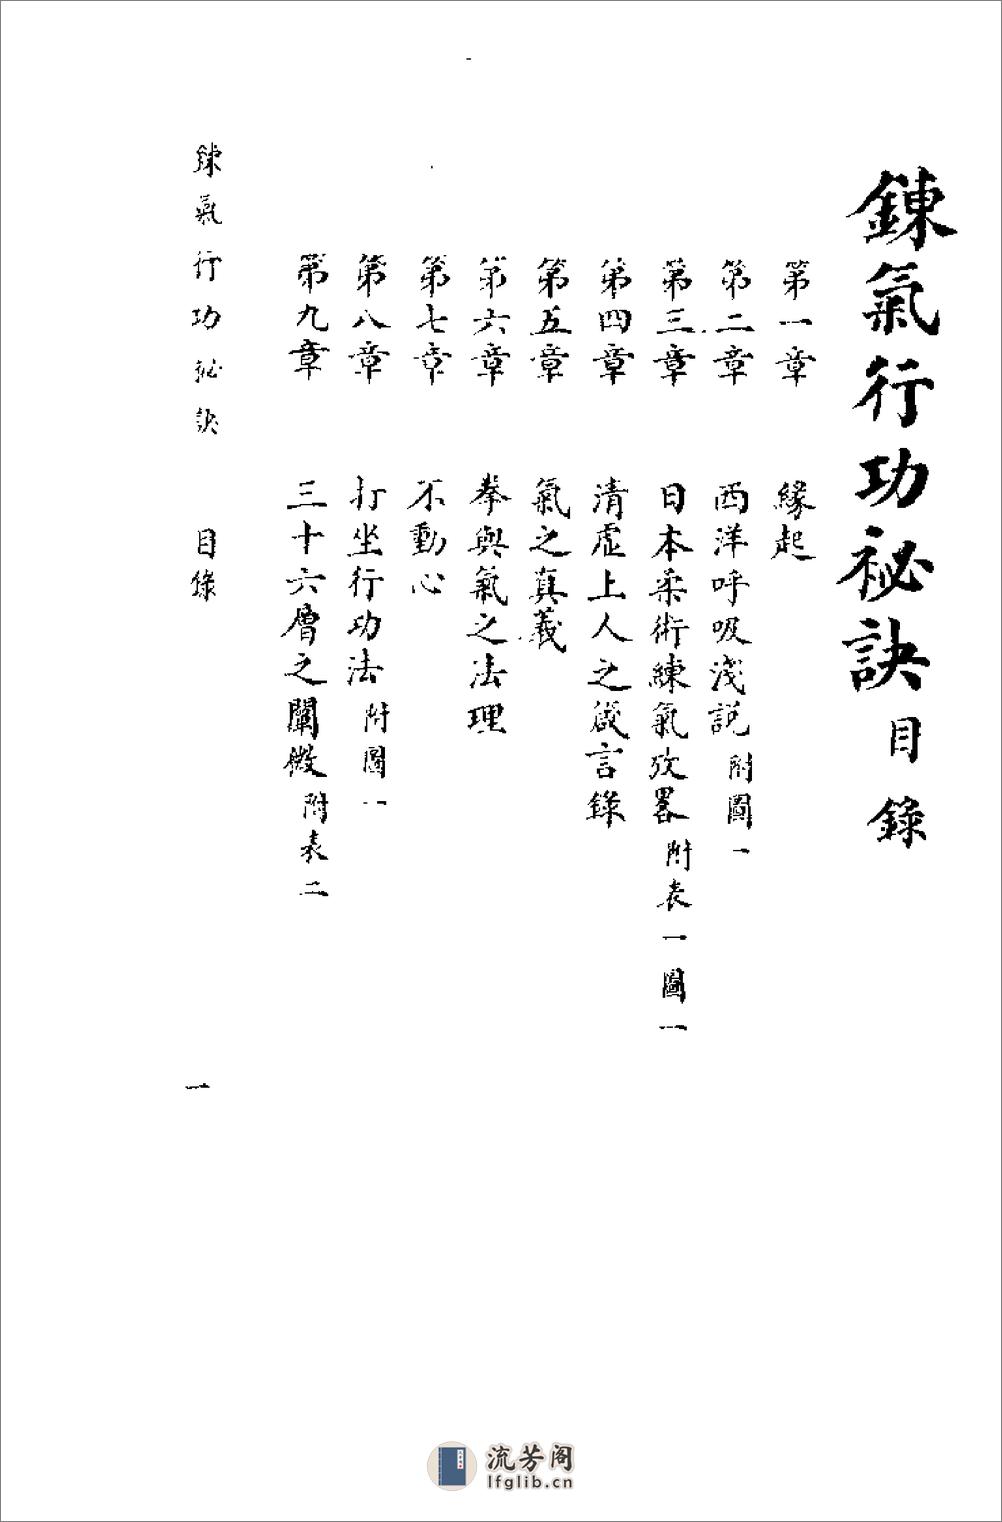 鍊氣行功祕訣目錄
第一章 緣起
第二章 西洋呼吸淺説 附圖一
第三章 日本柔術練氣攷畧 附表一圖一
第四章 清虛上人之箴言錄
第五章 氣之真義
第六章 拳與氣之法理
第七章 不動心
第八章 打坐行功法 附圖一
第九章 三十六層之闡微 附表二
鍊氣行功祕訣 目錄 一
流芳阁
lfglib.cn